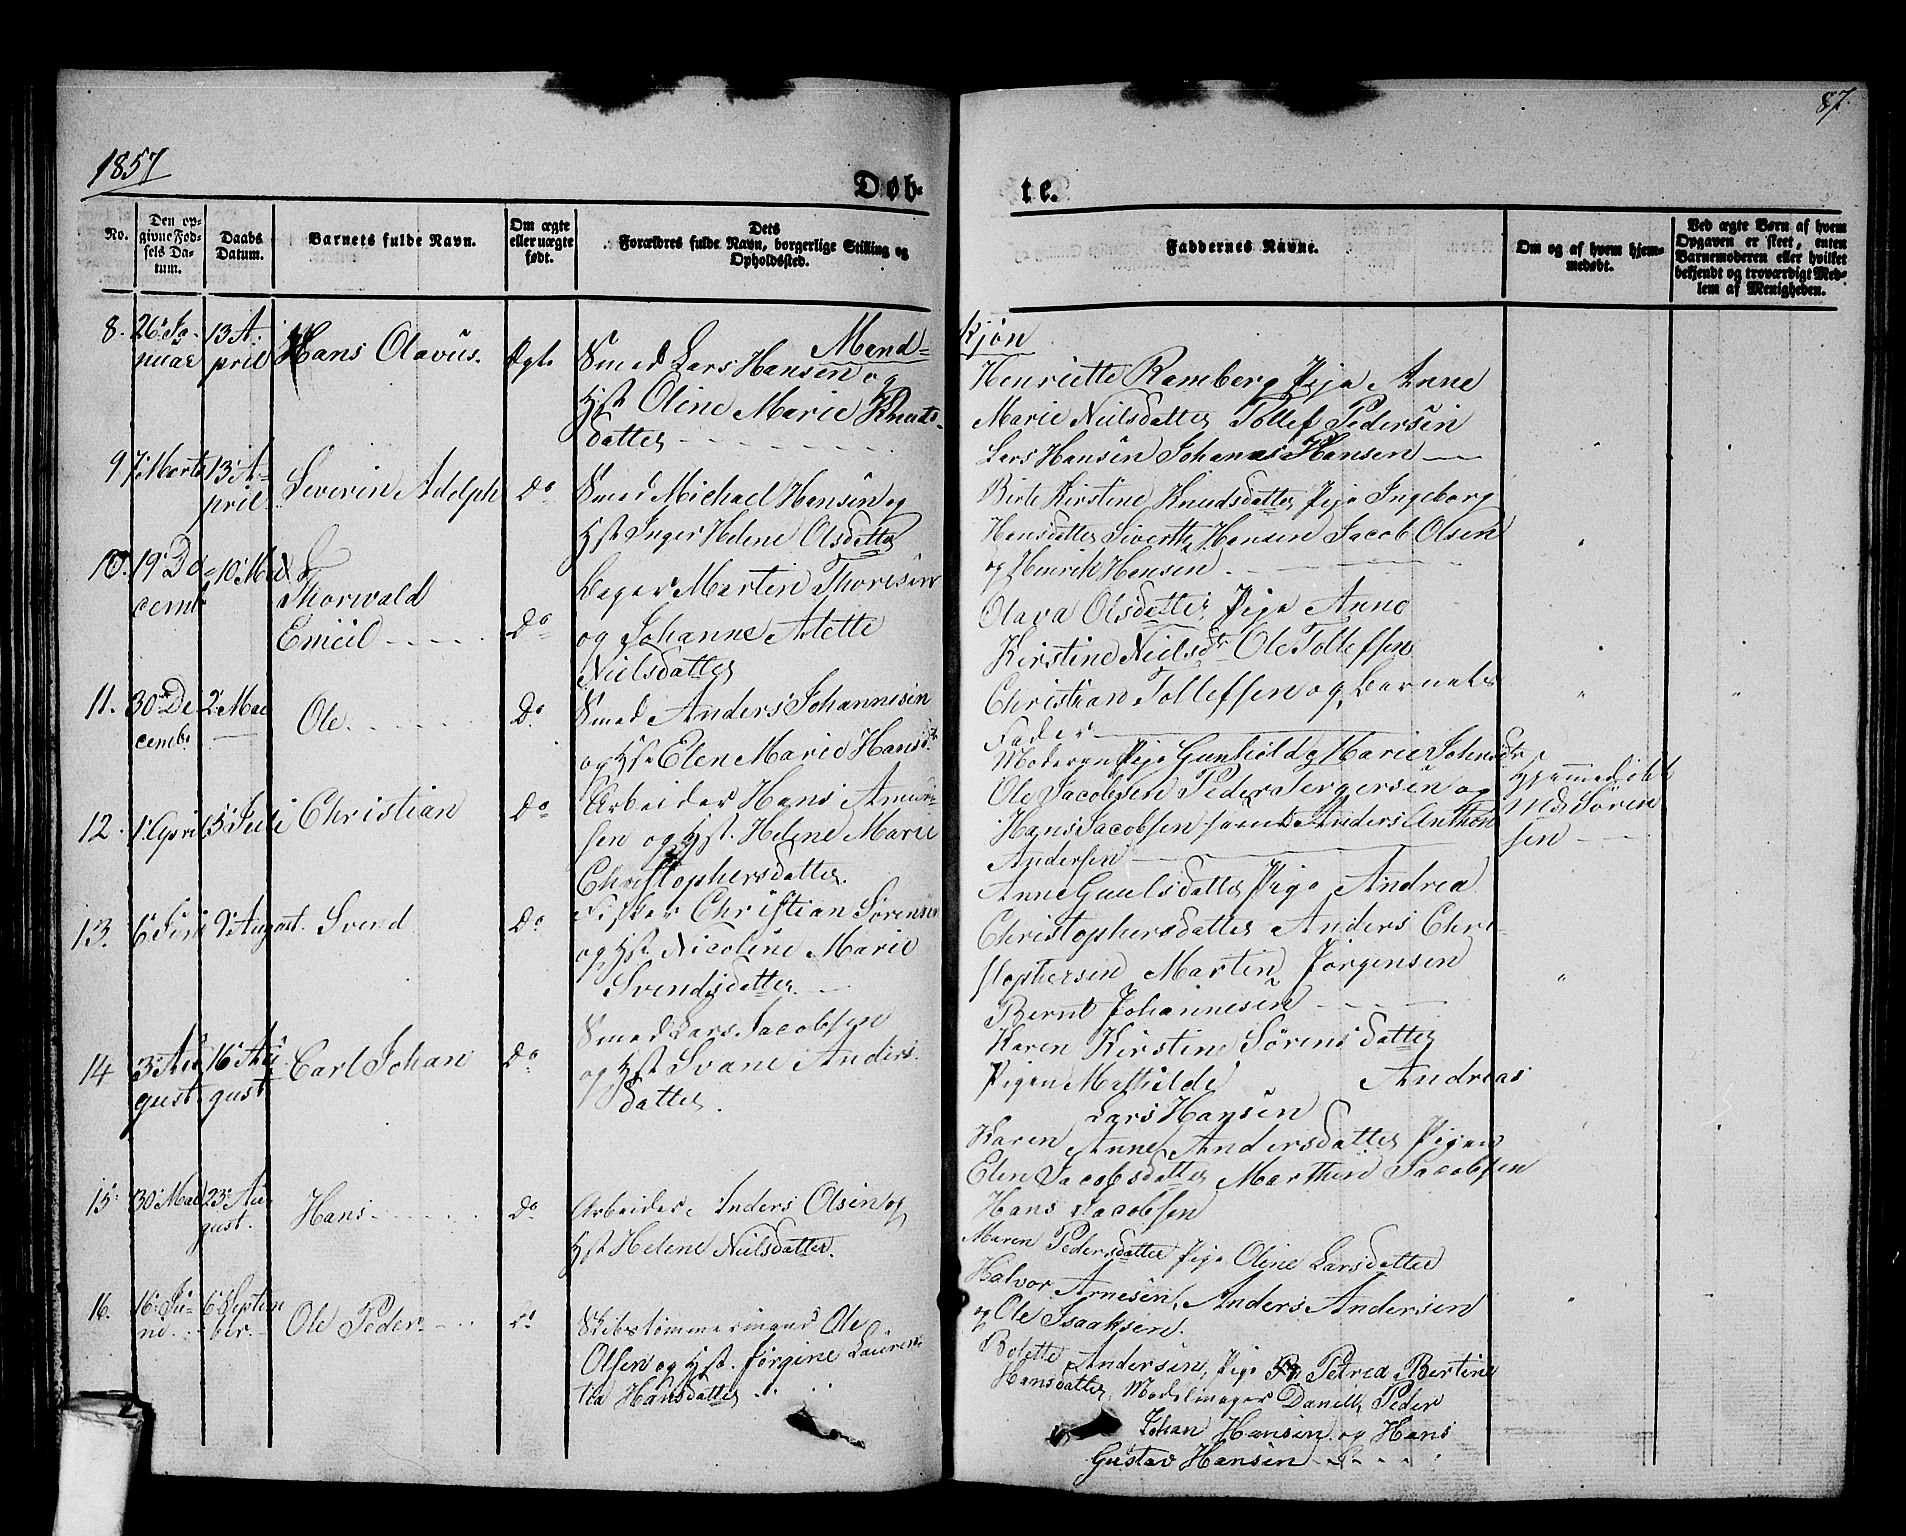 87.
1857
Døb-
te.
No.
Den op-
givne Fød-
sels Da-
tum.
Daabs
Datum.
Barnets fulde Navn.
Om ægte
eller uægte
født.
Dets
Forældres fulde Navn, borgerlige Stilling og
Opholdssted.
Faddernes Navne.
Om og af hvem hjem-
medøbt.
Ved ægte Børn af hvem
Opgaven er skeet, enten
Barnemoderen eller hvilket
bekjendt og troværdigt Med-
lem af Menigheden.
Mand-
kjøn
8. 26 Ja-
nuar
13 A-
pril
Hans Olavus.
Ægte
Smed Lars Hansen og
Hst Oline Marie Knuds-
datter
Henriette Ramberg Pige Anne
Marie Nielsdatter Tollef Pedersen
Lars Hansen Johannes Hansen
9 7 Marts
13 A-
pril
Severin Adolph
Do
Smed Michael Hansen og
Hst Inger Helene Olsdatter
Birte Kirstine Knudsdatter Pige Ingeborg
Hansdatter Siverth Hansen Jacob Olsen
og Henrik Hansen
10. 19 De-
cemb
10 Mai
Thorwald
Emiil
Do
Bager Martin Thoresen
og Johanne Alette
Nielsdatter
Olava Olsdatter Pige Anne
Kirstine Nielsdr Ole Tollefsen
Christian Tollefsen og Barnets
Fader
11. 30 De-
cembr
2 Mai
Ole.
Do
Smed Anders Johannesen
og Hst Elen Marie Hansdtr
Moderen Pige Gunhild Marie Johnsdtr
Ole Jacobsen Peder Jørgersen og
Hans Jacobsen samt Anders Anthon
Andersen
Hjemmedøbt
ved Søren
sen
12. 1 April
5 Juli
Christian
Do
Arbeider Hans
sen og Hst. Helene Marie
Christophersdatter.
Anne Guulsdatter Pige Andrea
Christophersdatter Anders Chri-
stophersen Martin Jørgensen
Bernt Johannesen
13. 6 Juni
9 August.
Svend
Do
Fisker Christian Sørensen
og Hst. Nicoline Marie
Svendsdatter.
Karen Kirstine Sørensdatter
Pigen Mathilde " Andreas
Lars Hansen
14 3 Au
gust.
16 Au
gust
Carl Johan
Do
Smed Lars Jacobsen
og Hst Svane Anders-
datter.
Karen Anne Andersdatter Pigen
Elen Jacobsdatter Marthin Jacobsen
Hans Jacobsen
15. 30 Mai
23 Au
gust.
Hans
Do
Arbeider Anders Olsen og
Hst Helene Nielsdatter.
Maren Pedersdatter Pige Oline Larsdatter
Halvor Arnesen, Anders Andersen
og Ole Isaaksen.
16. 16 Ju-
ni
6 Septem
ber.
Ole Peder
Do
Skibstømmermand Ole
Olsen og Hst. Jørgine Lauren-
tia Hansdatter
Bolette Andersen, Pige Petrea Bertine
Hansdatter Daniel, Peder
Johan Hansen og Hans
Gustav Hansen